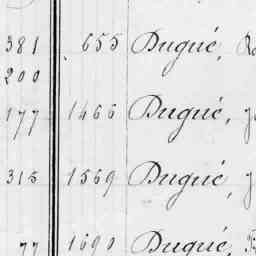 381 655 Dugué,
200
177 1466 Dugué,
315 1569 Dugué,
77 1690 Dugué,